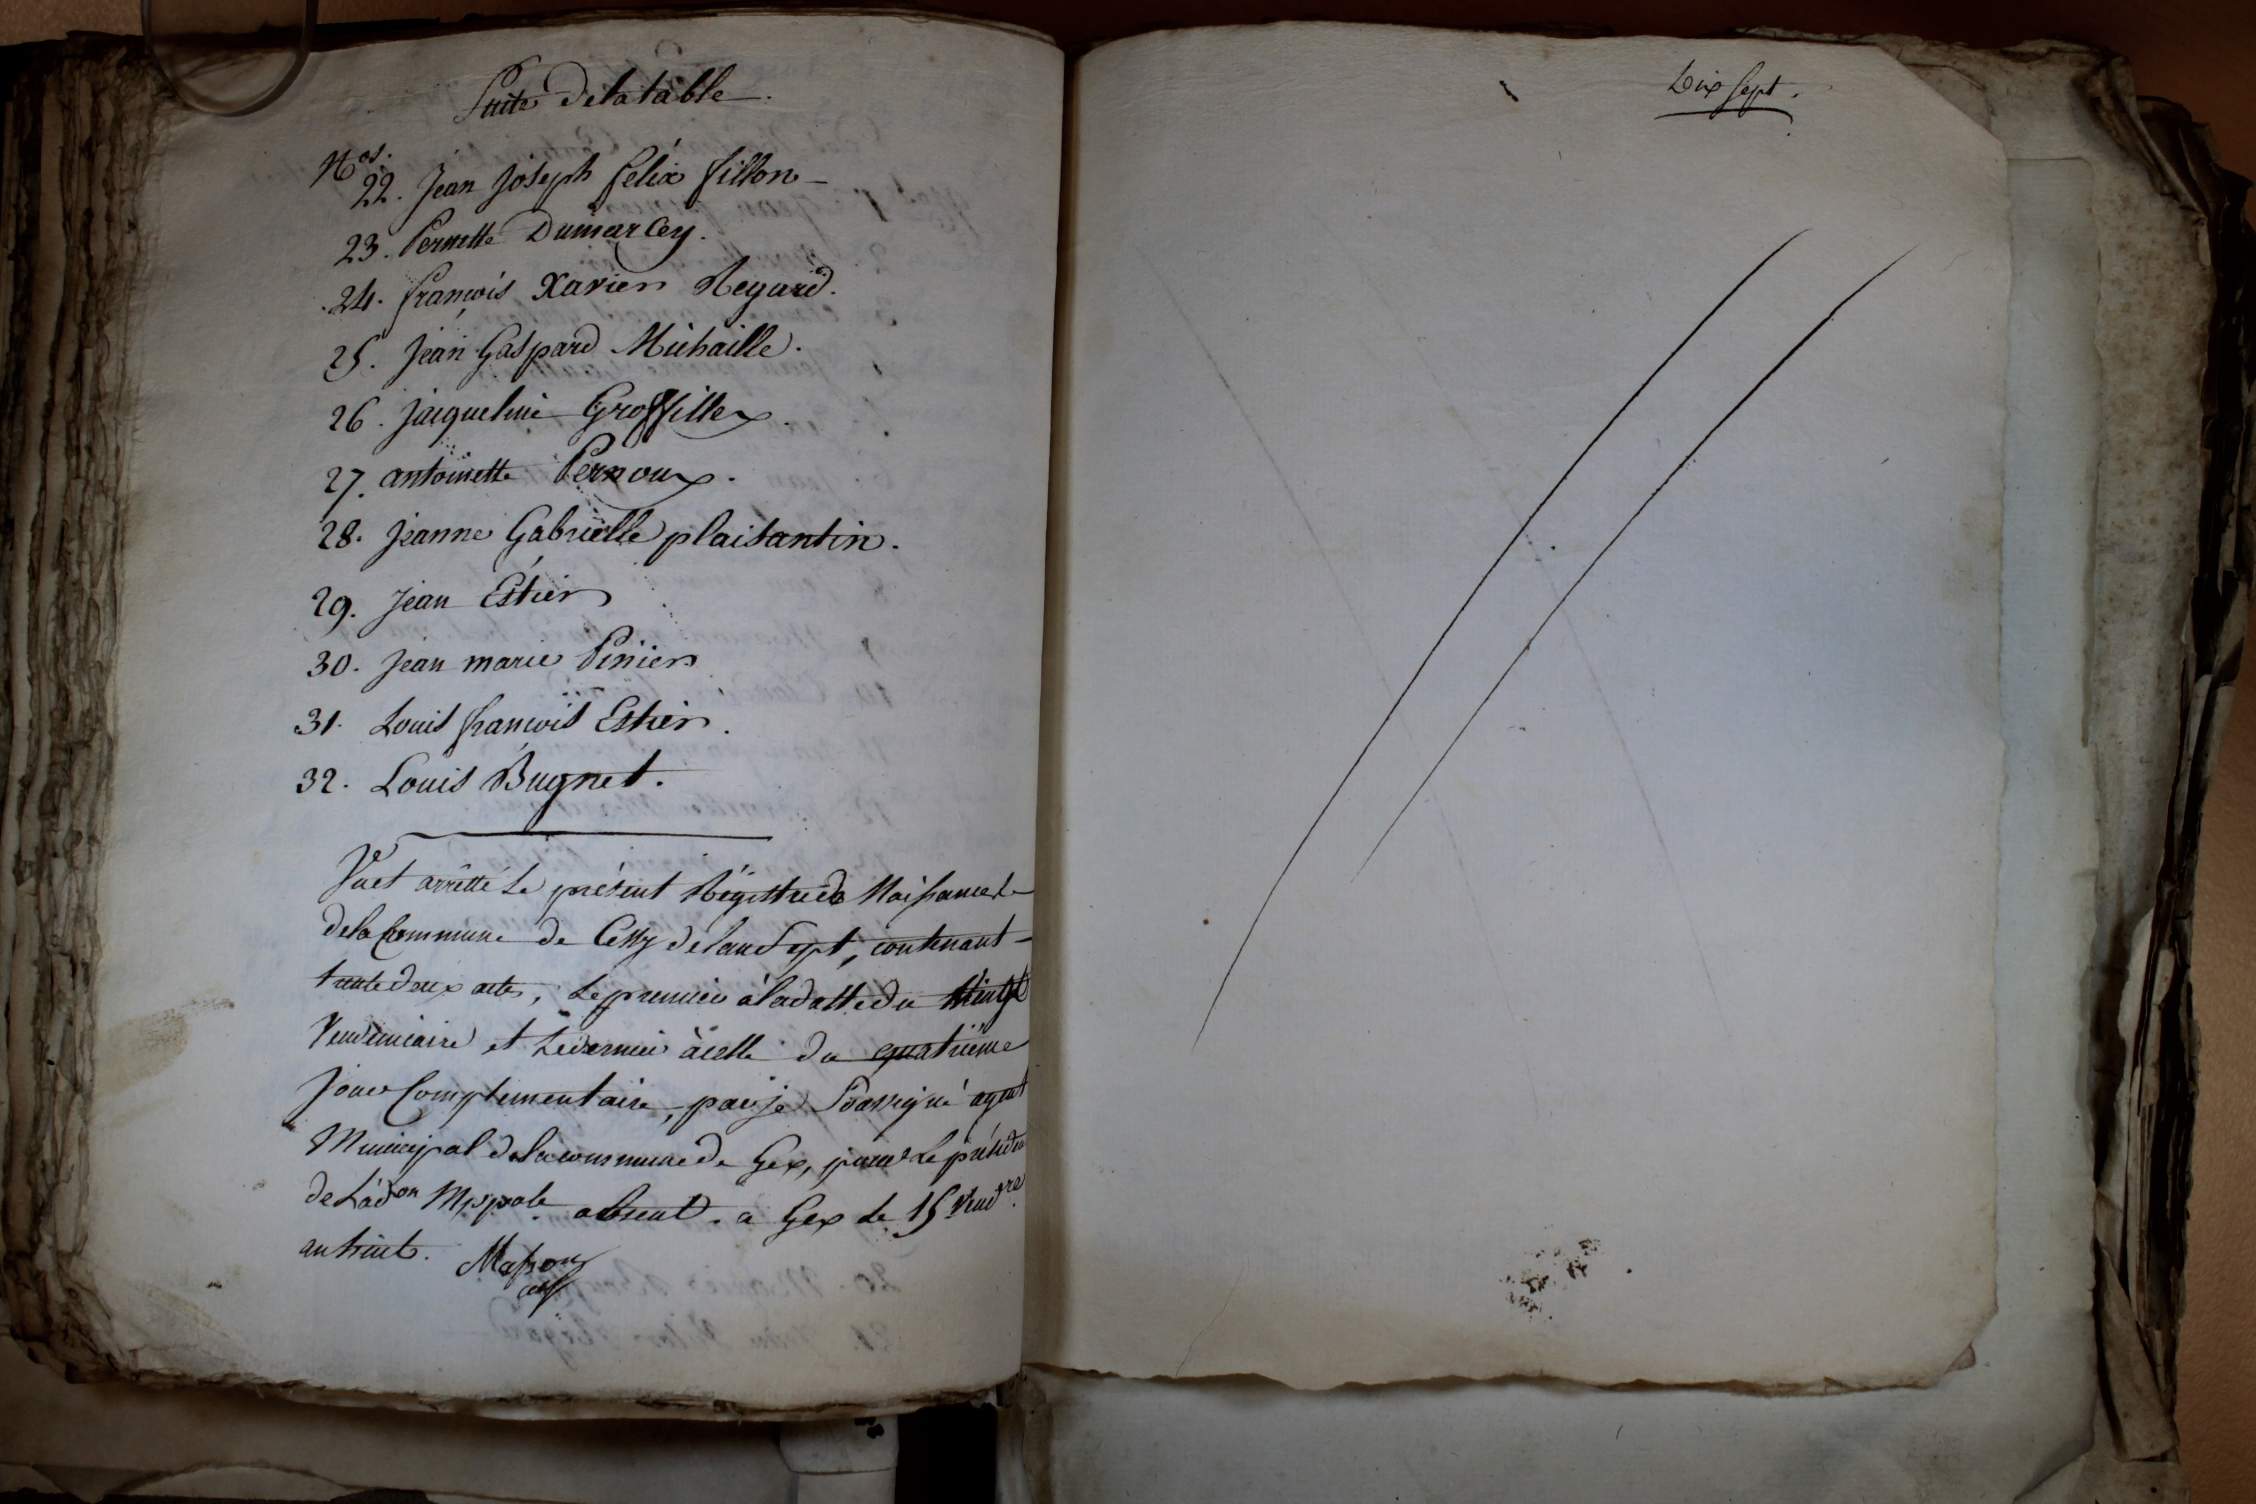 Suite de la table.
Nos.
22. Jean Joseph félix fillon
23. Pernette Dumarcey.
24. françois Xavier Regard.
25. Jean Gaspard Michaille.
26. Jacqueline Grosfillex.
27. antoinette Pernoux.
28. Jeanne Gabrielle plaisantin.
29. Jean Estier
30. Jean marie Pinier
31. Louis françois Estier.
32. Louis Bugnet.
Vu et arrêtté le présent Régistre de Naissance
de la Commune de Cessy de l'an Sept, contenant
trente deux actes, le premier à la datte du
Vendemiaire et le dernier à celle du quatrième
jour Complementaire, par je Soussigné agent
Municipal de la commune de Gex, pour le présidt
de L'ad.on Mppale absent. a Gex le 15 Vend.re
an huit. Masson
agt
Dix Sept.